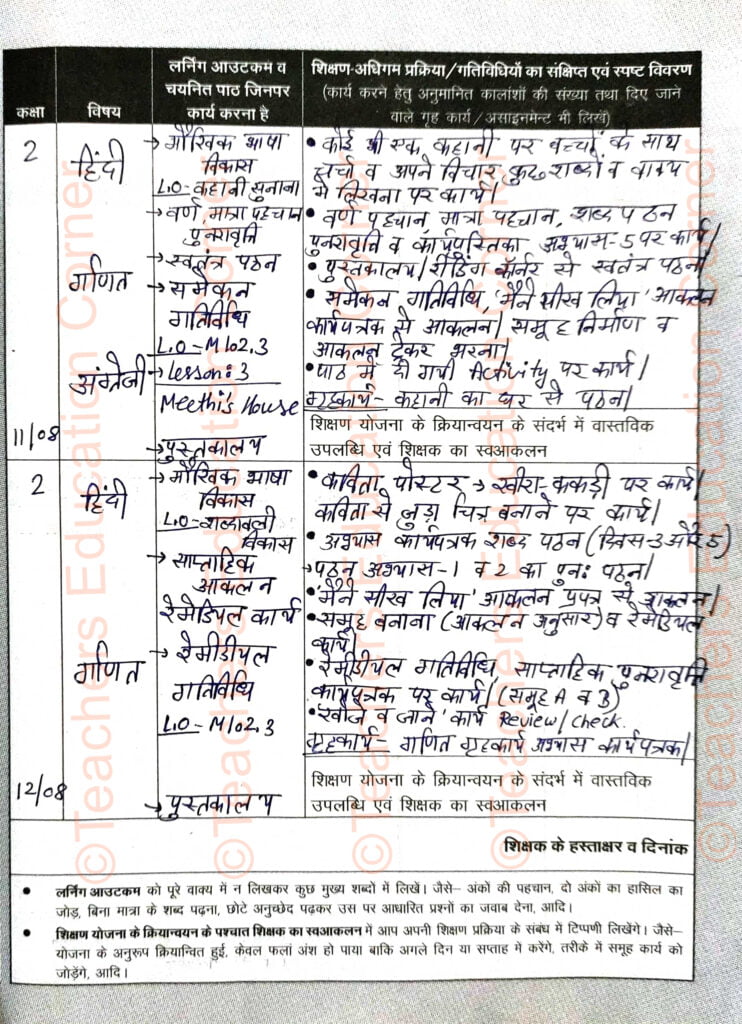 कक्षा
विषय
लर्निंग आउटकम व
चयनित पाठ जिनपर
कार्य करना है
शिक्षण-अधिगम प्रक्रिया/गतिविधियों का संक्षिप्त एवं स्पष्ट विवरण
(कार्य करने हेतु अनुमानित कालांशों की संख्या तथा दिए जाने
वाले गृह कार्य/असाइनमेंट भी लिखें)
2
हिंदी
→ मौखिक भाषा
विकास
L.O - कहानी सुनाना
→ वर्ण, मात्रा पहचान
पुनरावृत्ति
→ स्वतंत्र पठन
• कोई भी एक कहानी पर बच्चों के साथ
चर्चा व अपने विचार कुछ शब्दों व वाक्य
में लिखना पर कार्य।
• वर्ण पहचान, मात्रा पहचान, शब्द पठन
पुनरावृत्ति व कार्यपुस्तिका अभ्यास-5 पर कार्य।
• पुस्तकालय/रीडिंग कॉर्नर से स्वतंत्र पठन।
गणित
→ समेकन
गतिविधि
L.O - M102.3
• समेकन गतिविधि, 'मैंने सीख लिया' आकलन
कार्यपत्रक से आकलन। समूह निर्माण व
आकलन ट्रैकर भरना।
अंग्रेजी
→ Lesson: 3
Meethi's House
• पाठ में दी गयी Activity पर कार्य।
गृहकार्य - कहानी का घर से पठन।
11/08
→ पुस्तकालय
शिक्षण योजना के क्रियान्वयन के संदर्भ में वास्तविक
उपलब्धि एवं शिक्षक का स्वआकलन
2
हिंदी
→ मौखिक भाषा
विकास
L.O - शब्दावली
विकास
→ साप्ताहिक
आकलन
रेमेडियल कार्य
• कविता पोस्टर → खीरा-ककड़ी पर कार्य।
कविता से जुड़ा चित्र बनाने पर कार्य।
• अभ्यास कार्यपत्रक शब्द पठन (दिवस-3 और 5)
→ पठन अभ्यास-1 व 2 का पुनः पठन।
• 'मैंने सीख लिया' आकलन प्रपत्र से आकलन।
• समूह बनाना (आकलन अनुसार) व रेमेडियल
कार्य।
गणित
→ रेमीडीयल
गतिविधि
L.O - M102.3
• रेमीडीयल गतिविधि, साप्ताहिक पुनरावृत्ति
कार्यपत्रक पर कार्य। (समूह A व B)
• 'खोजें व जानें' कार्य Review/check.
गृहकार्य - गणित गृहकार्य अभ्यास कार्यपत्रक।
12/08
→ पुस्तकालय
शिक्षण योजना के क्रियान्वयन के संदर्भ में वास्तविक
उपलब्धि एवं शिक्षक का स्वआकलन
शिक्षक के हस्ताक्षर व दिनांक
• लर्निंग आउटकम को पूरे वाक्य में न लिखकर कुछ मुख्य शब्दों में लिखें। जैसे– अंकों की पहचान, दो अंकों का हासिल का
जोड़, बिना मात्रा के शब्द पढ़ना, छोटे अनुच्छेद पढ़कर उस पर आधारित प्रश्नों का जवाब देना, आदि।
• शिक्षण योजना के क्रियान्वयन के पश्चात शिक्षक का स्वआकलन में आप अपनी शिक्षण प्रक्रिया के संबंध में टिप्पणी लिखेंगे। जैसे–
योजना के अनुरूप क्रियान्वित हुई, केवल फलां अंश हो पाया बाकि अगले दिन या सप्ताह मे करेंगे, तरीके में समूह कार्य को
जोड़ेंगे, आदि।
©Teachers Education Corner
©Teachers Education Corner
©Teachers Education Corner
©Teachers Education Corner
©Teachers Education Corner